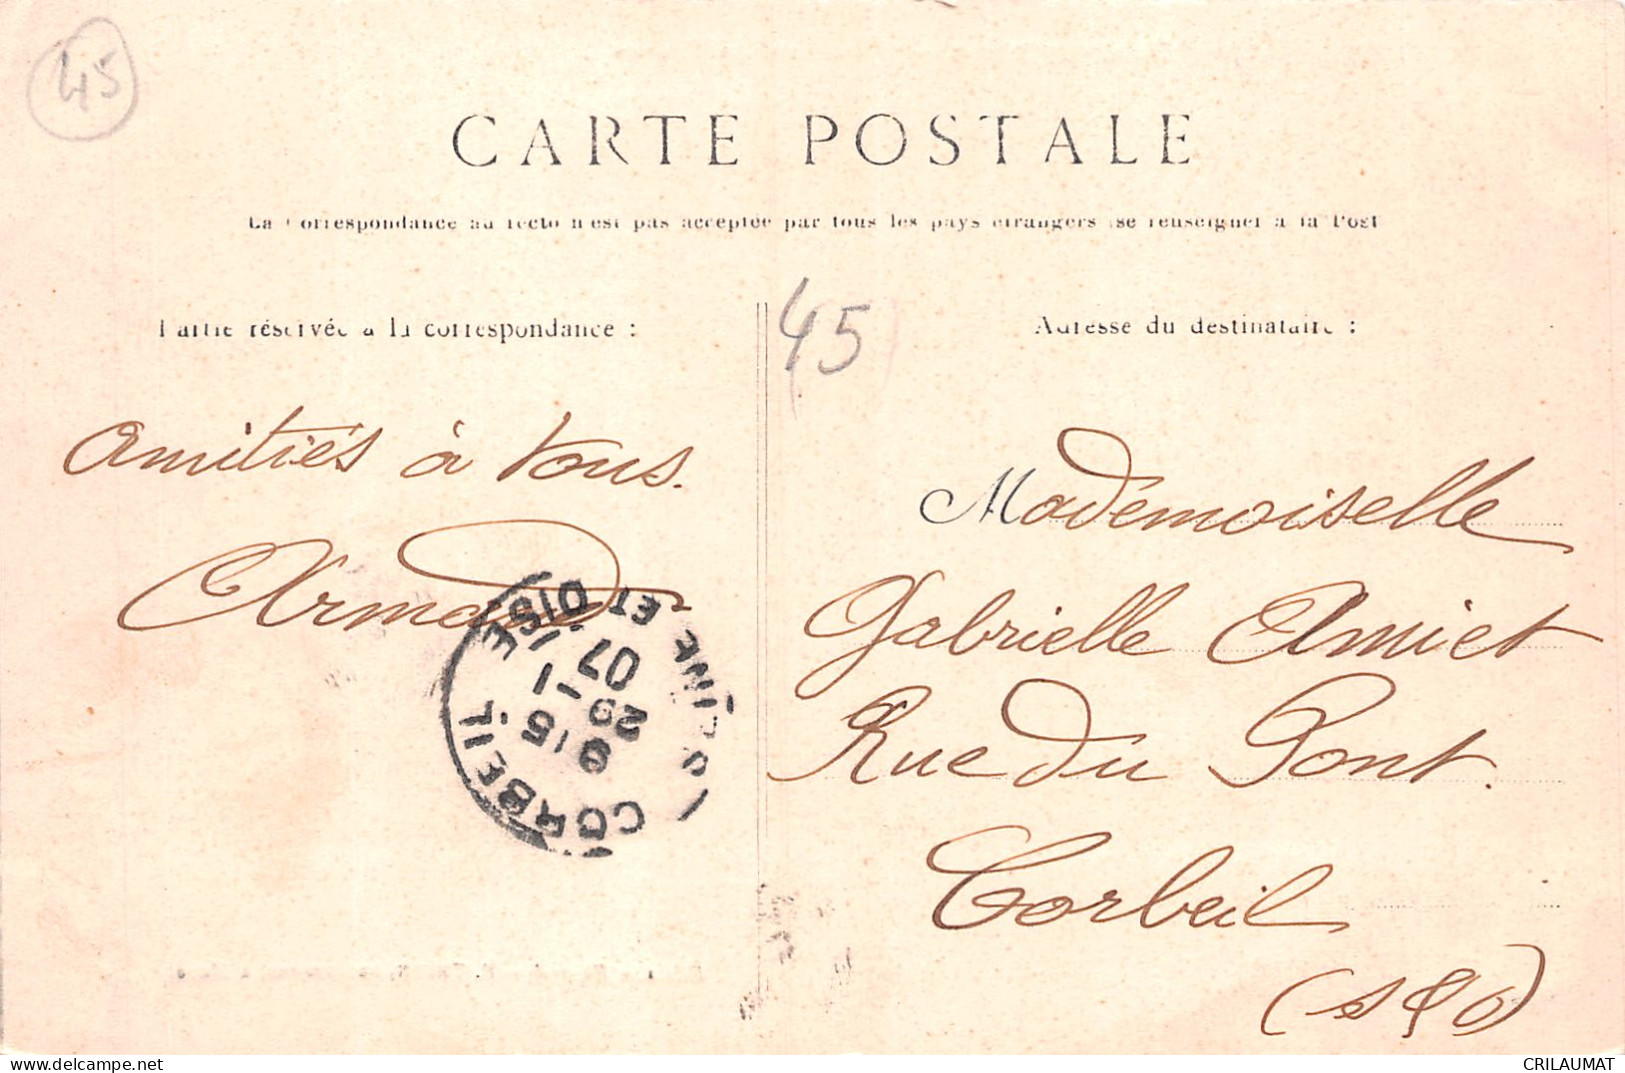 45
CARTE POSTALE
La Correspondance au recto n'est pas acceptée par tous les pays étrangers (se renseigner à la Post
Partie réservée à la correspondance :
45
Adresse du destinataire :
Amitiés à tous.
Armande
CORBEIL
SEINE ET OISE
9 15
29 - 1
07
Mademoiselle
Gabrielle Amiet
Rue du Pont.
Corbeil
(S & O)
CRILAUMAT